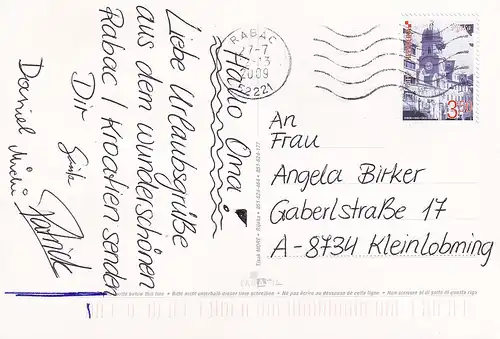 Hallo Oma!
Liebe Urlaubsgrüße
aus dem wunderschönen
Rabac / Kroatien senden
Dir
Daniel Michi Patrick
RABAC
27-7
2009
52221
An
Frau
Angela Birker
Gaberlstraße 17
A-8734 Kleinlobming
below this line • Bitte nicht unterhalb dieser Linie schreiben • Ne pas écrire au dessous de cette ligne • Non scrivere al di sotto di questa riga